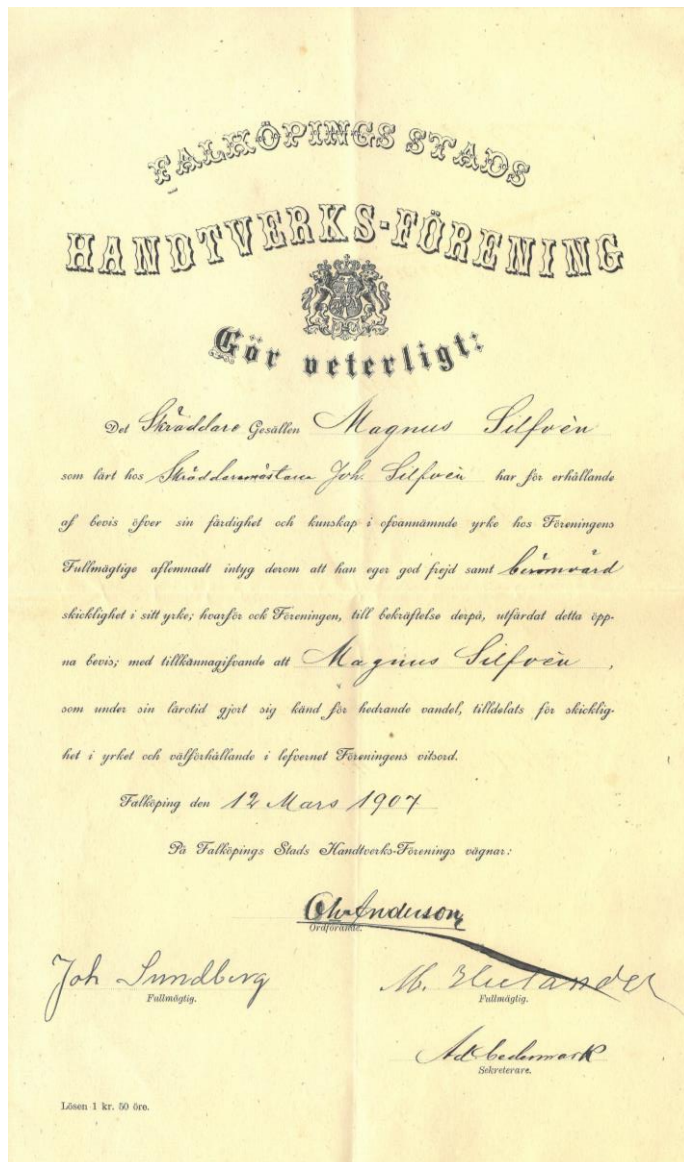 FALKÖPINGS STADS
HANDTVERKS-FÖRENING
Gör veterligt:
Det Skräddare Gesällen Magnus Silfvèn
som lärt hos Skräddaremästaren Joh. Silfvèn har för erhållande
af bevis öfver sin färdighet och kunskap i ofvannämnde yrke hos Föreningens
Fullmägtige aflemnadt intyg derom att han eger god frejd samt berömvärd
skicklighet i sitt yrke; hvarför ock Föreningen, till bekräftelse derpå, utfärdat detta öpp-
na bevis; med tillkännagifvande att Magnus Silfvèn,
som under sin lärotid gjort sig känd för hedrande vandel, tilldelats för skicklig-
het i yrket och välförhållande i lefvernet Föreningens vitsord.
Falköping den 12 Mars 1907
På Falköpings Stads Handtverks-Förenings vägnar:
Anderson
Ordförande.
Joh Sundberg
Fullmägtig.
M.
Fullmägtig.
Ad Cedermark
Sekreterare.
Lösen 1 kr. 50 öre.